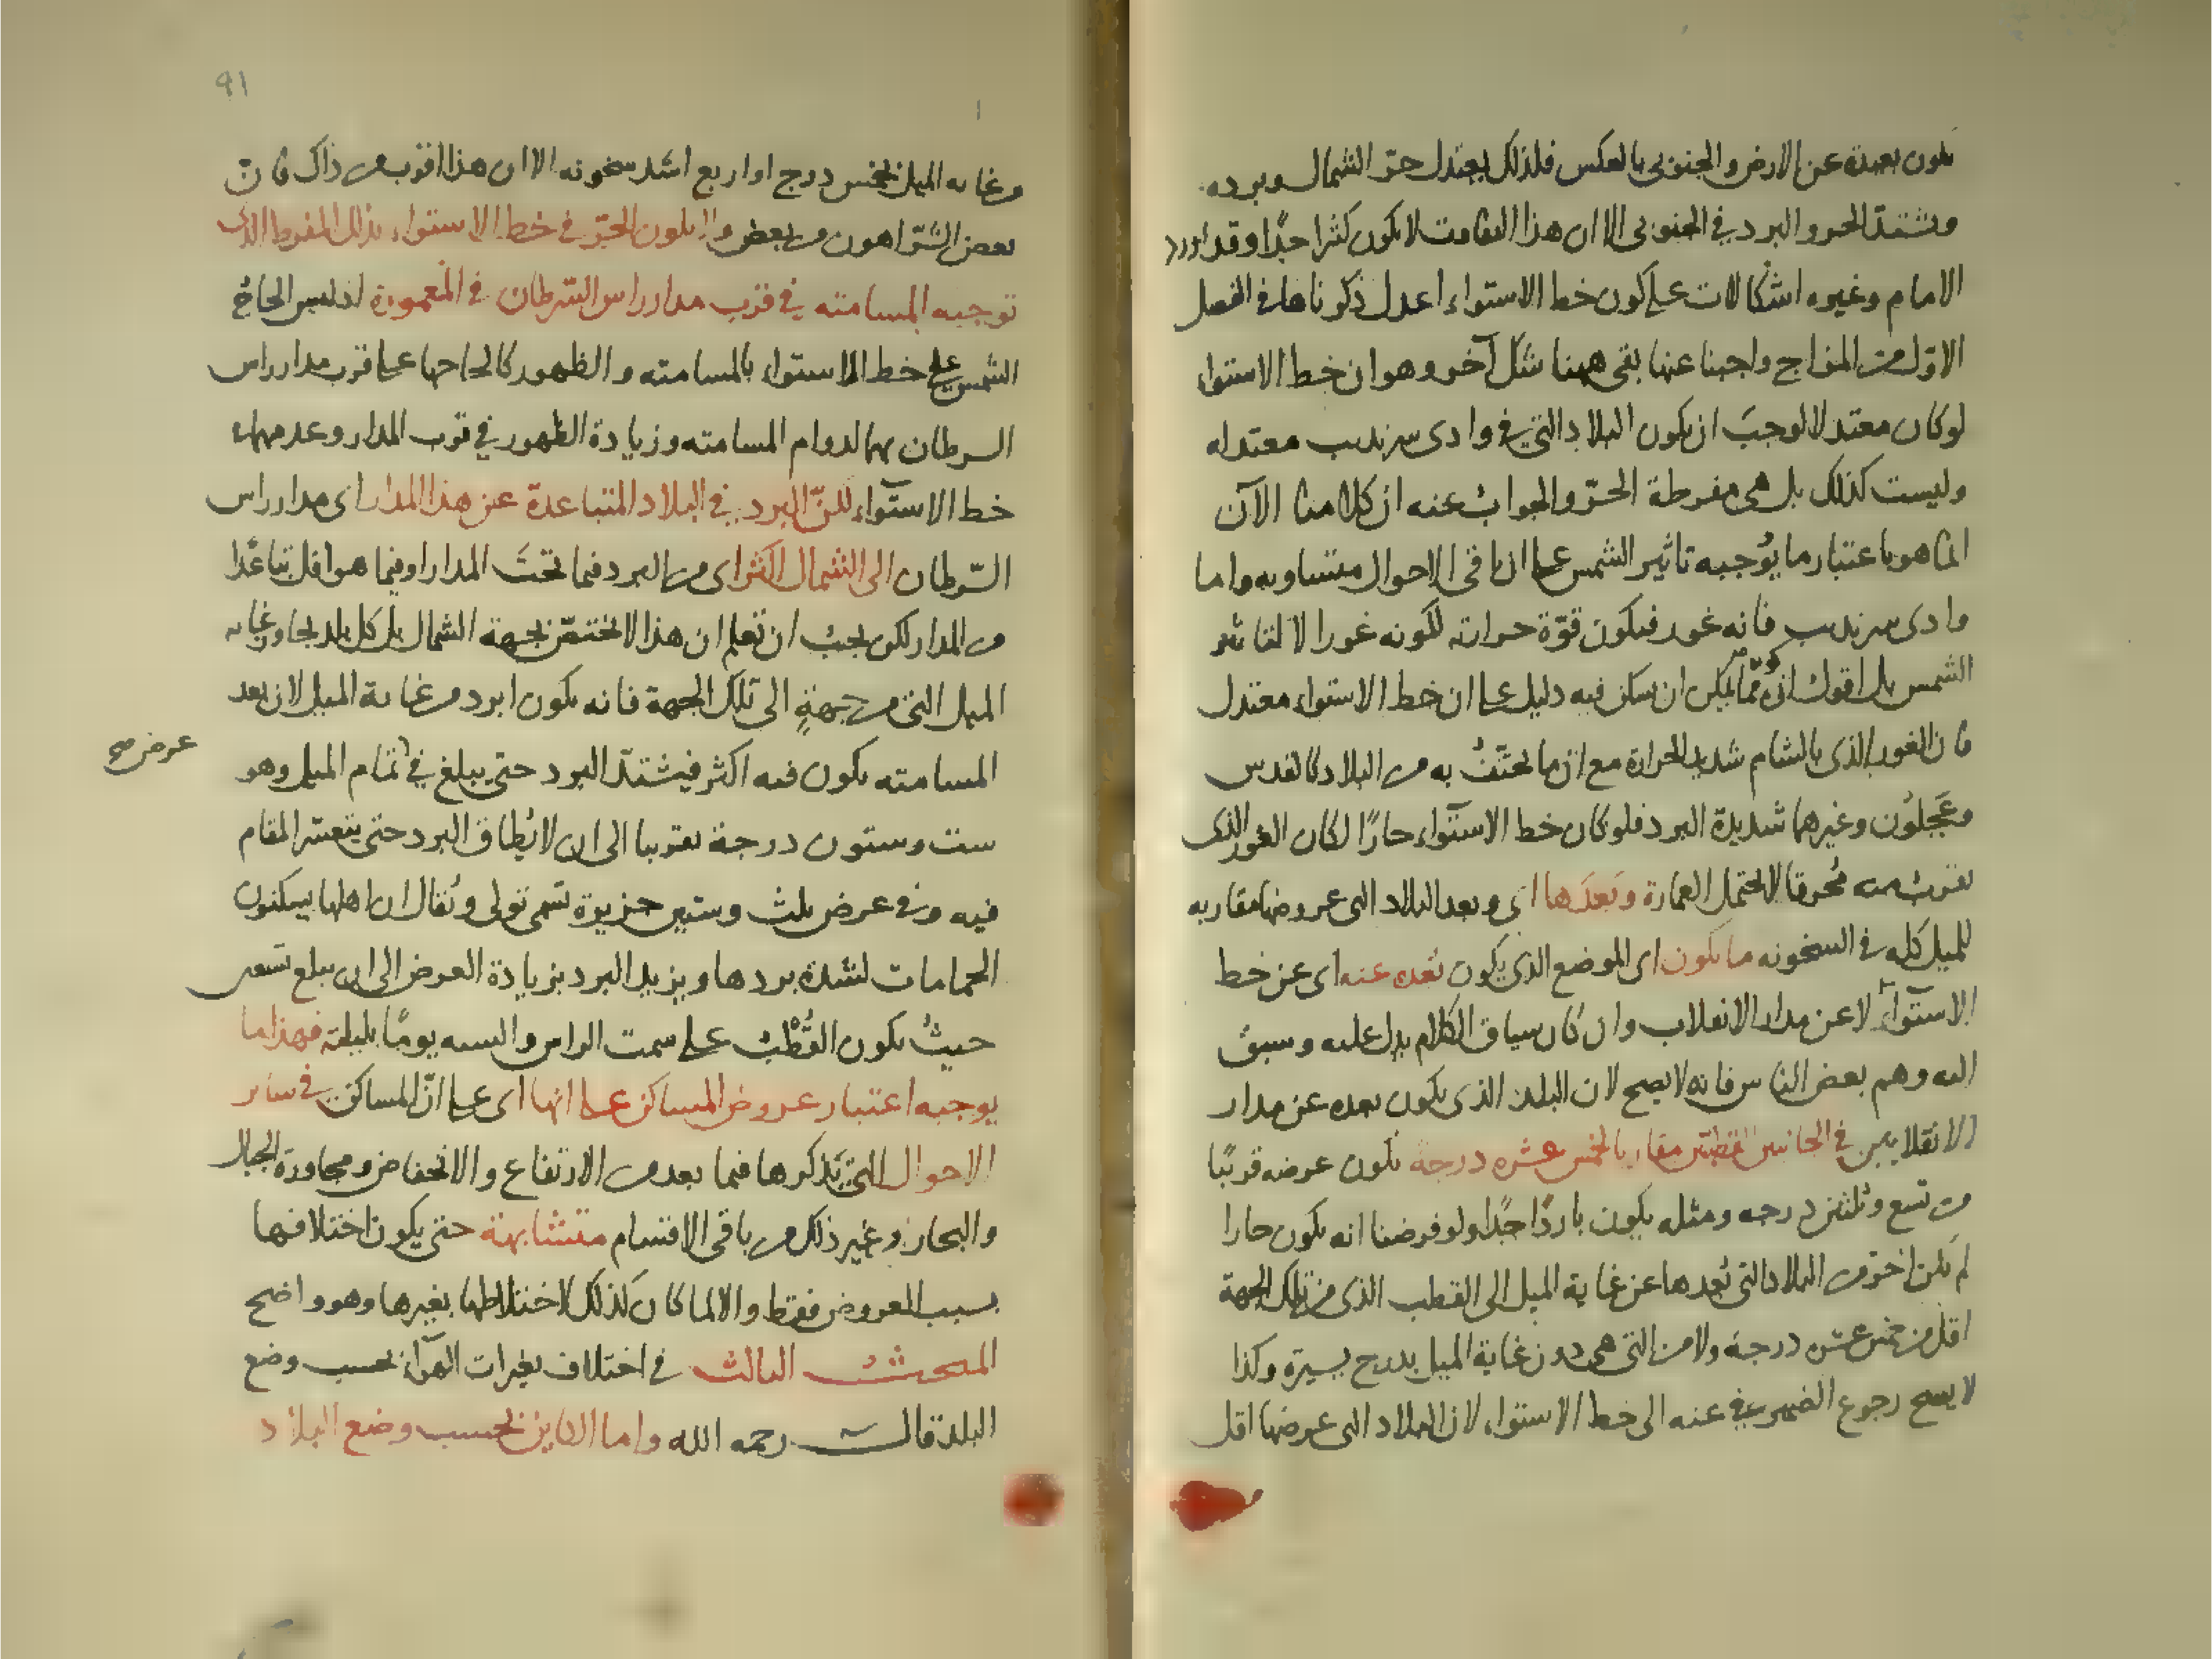 يكون بعيدة عن الارض والجنوبى بالعكس فلذلك يعتدل حرّ الشمال وبرده
ويشتدّ الحر والبرد في الجنوبى الا ان هذا التفاوت لا يكون كثيرا جدًّا وقد اورد
الامام وغيره اشكالات على كون خط الاستواء اعدل ذكرناها في الفصل
الاوّل من المزاج واجبنا عنها بقى ههنا شكل آخر وهو ان خط الاستواء
لو كان معتدلا لوجبَ ان يكون البلاد التى في وادى سرنديب معتدله
وليست كذلك بل هى مفرطة الحرّ والجواب عنه ان كلامنا الآن
انما هو باعتبار ما يوُجبه تاثير الشمس على ان باقى الاحوال متساويه واما
وادى سرنديب فانه غور فيكون قوّة حرارته لكونه غورا لا لتاثير
الشمس بل اقول انّ كونه ممّا يمكن ان يسكن فيه دليل على ان خط الاستواء معتدل
فان الغور الذى بالشام شديد الحرارة مع ان ما يحتَفُ به من البلاد كالقدس
وعَجلوُن وغيرهما شديدة البرد فلو كان خط الاستوآء حارًا لكان الغور الذى
يقرب منه مُحرقا لا يحتمل العمارة وبَعدَها اى وبعد البلاد التى عروضها مقاربه
للميل كله في السخونه ما يكون اى الموضع الذى يكون بُعده عنه اى عن خط
الاستوآء لا عن مدار الانقلاب وان كان سياق الكلام يدل عليه وسبق
اليه وهم بعض الناس فانه لا يصح لان البلد الذى يكون بعده عن مدار
الانقلابين في الجانبين القطبيّين مقاربا لخمس عشره درجة يكون عرضه قريبًا
من تسع وثلثين درجه ومثله يكون باردًا جدًّا ولو فرضنا انه يكون حارا
لم يكن احرّ من البلاد التى بُعدها عن غاية الميل الى القطب الذى من تلك الجهة
اقل من خمس عشر درجة ولا من التى هى دون غاية الميل بدرج يسيرة وكذا
لا يصح رجوع الضمير في عنه الى خط الاستواء لان البلاد التى عرضها اقل
٩١
وغايه الميل بخمس درج او اربع اشد سخونه الا ان هذا اقرب من ذاك فان
بعض الشرّ اهون من بعض ولا يكون الحرّ في خط الاستواء بذلك المفرط الذى
توجبه المسامته في قرب مدار راس السّرطان في المعمورة اذ ليس الحاحُ
الشمس على خط الاستواء بالمسامته والظهور كالحاحها على قرب مدار راس
السرطان بهما لدوام المسامته وزيادة الظهور في قرب المدار وعدمهما في
خط الاستوآء لكنّ البرد في البلاد المتباعدة عن هذا المدار اى مدار راس
السّرطان الى الشمال اكثر اى من البرد فيما تحتَ المدار او فيما هو اقل تباعدًا
من المدار لكن يجب ان تعلم ان هذا لا يختصّ بجهة الشمال بل كل بلد يجاوز غايه
الميل التى من جهةٍ الى تلك الجهة فانه يكون ابرد من غاية الميل لان بعد
المسامته يكون فيه اكثر فيشتدّ البرد حتى يبلغ في تمام الميل وهو
عرض صح
ست وستون درجة تقريبا الى ان لا يُطاق البرد حتى يتعسّر المقام
فيه وفي عرض ثلث وستين جزيرة تسمى تولى ويُقال ان اهلها يسكنون
الحمامات لشدة بردها ويزيد البرد بزيادة العرض الى ان يبلغ تسعين
حيثُ يكون القُطْبُ على سمت الراس والسنه يومًا بليلته فهذا ما
يوجبه اعتبار عروض المساكن على انها اى على انّ المساكن في سائر
الاحوال التى يَذكرها فيما بعد من الارتفاع والانخفاض ومجاورة الجبال
والبحار وغير ذلك من باقى الاقسام متشابهة حتى يكون اختلافها
بسبب العروض فقط والا لما كان كذلك لاختلاطها بغيرها وهو واضح
المبحث الثالث في اختلاف تغيرات الهوآء بحسب وضع
البلد قال رحمه الله واما الكاين بحسب وضع البلاد